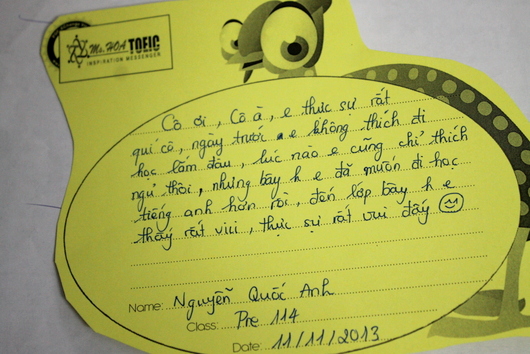 Ms. HOA TOEIC
INSPIRATION MESSENGER
Cô ơi, Cô à, e thực sự rất
quí cô, ngày trước e không thích đi
học lắm đâu, lúc nào e cũng chỉ thích
ngủ thôi, nhưng bây h e đã muốn đi học
tiếng anh hơn rồi, đến lớp bây h e
thấy rất vui, thực sự rất vui đấy
Name: Nguyễn Quốc Anh
Class: Pre 114
Date: 11/11/2013